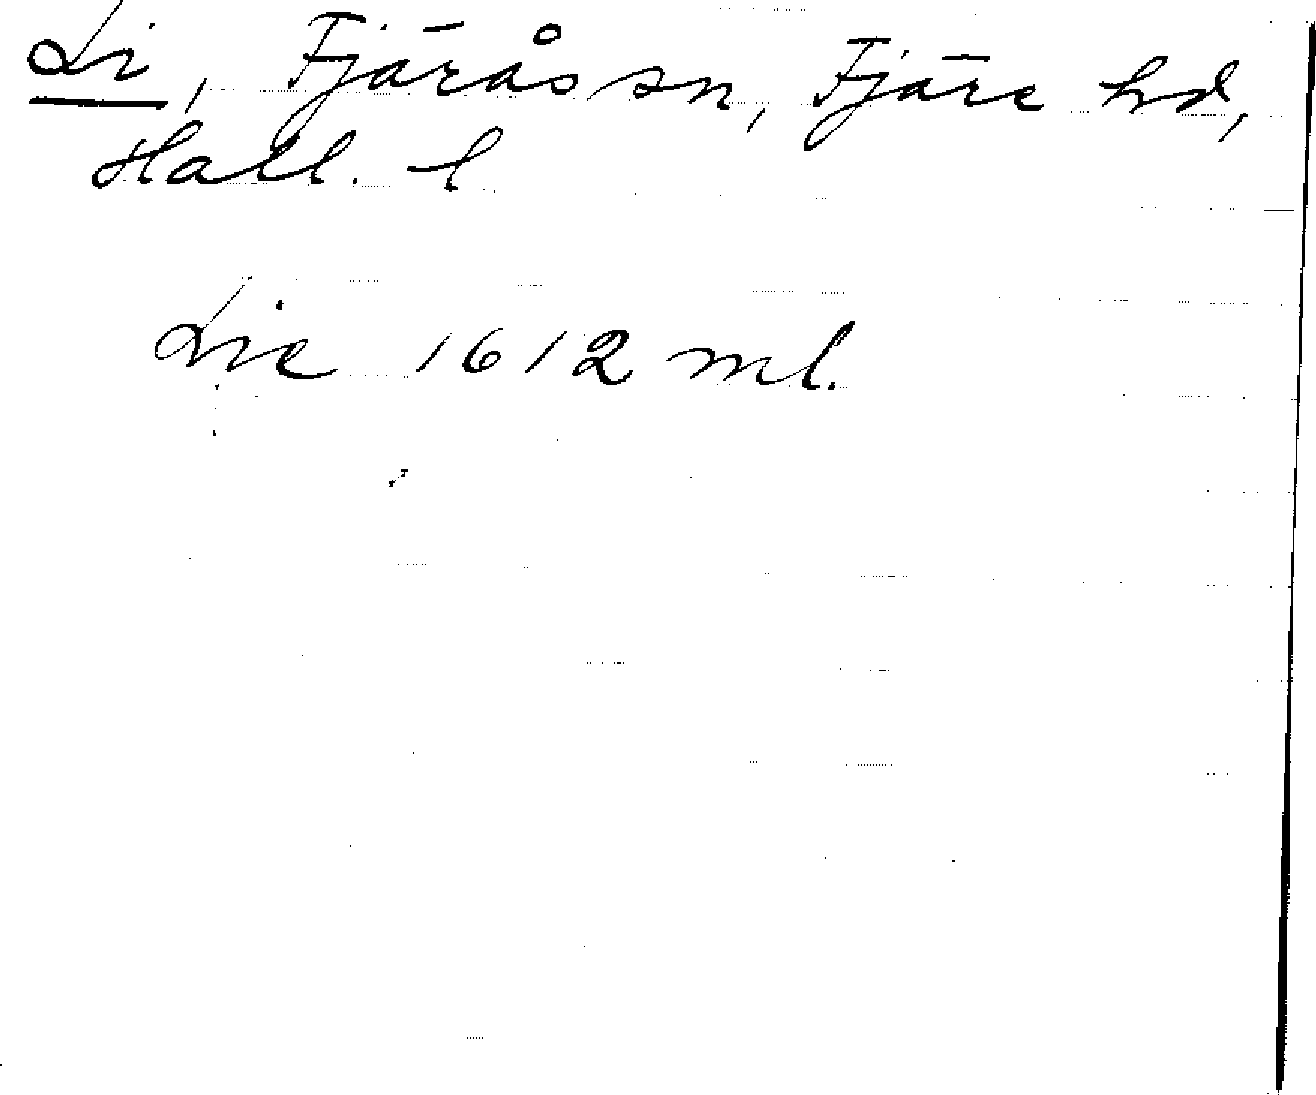 Li, Fjärås sn, Fjäre hd,
Hall. l
Lie 1612 ml.